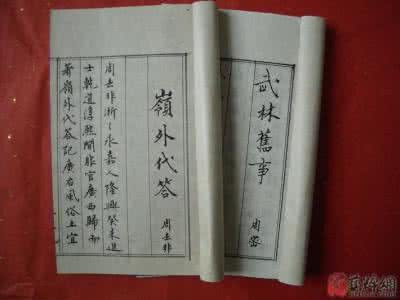 嶺外代答
周去非
周去非浙之永嘉人隆興癸未進
士乾道淳熙間非官廣西歸而
著嶺外代答記廣右風俗土宜
武林舊事
周密